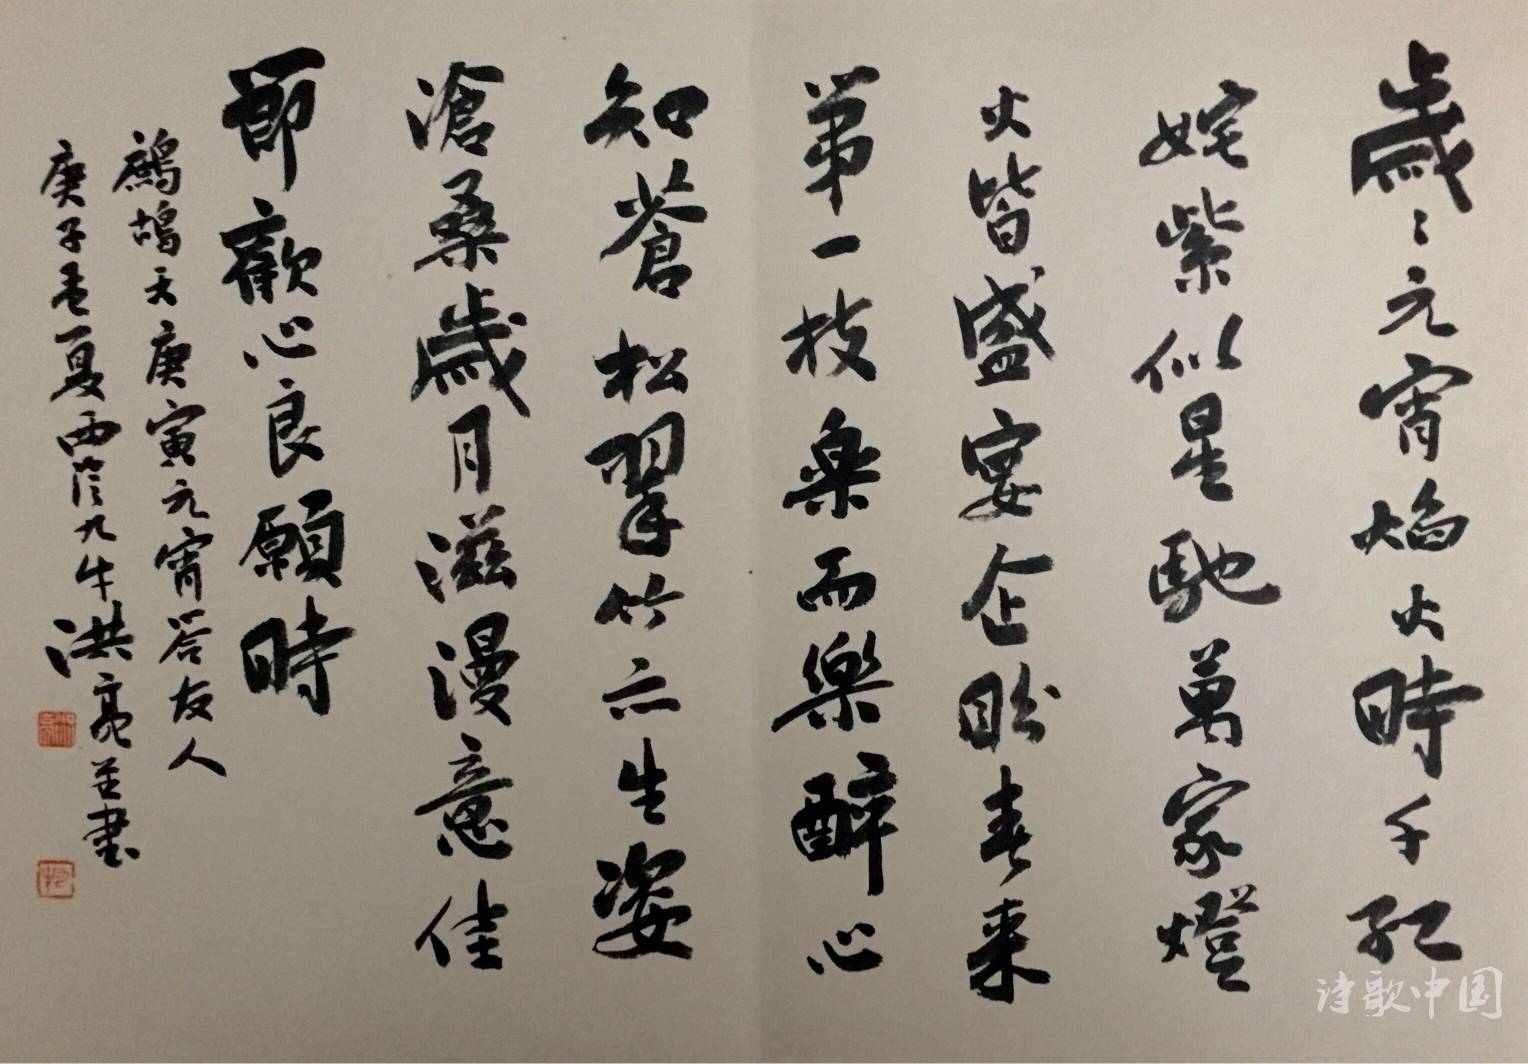 歲〻元宵焰火時千紅
姹紫似星馳萬家燈
火皆盛宴企盼春来
第一枝樂而樂醉心
知蒼松翠竹亦生姿
滄桑歲月滋漫意佳
節歡心良願時
鷓鴣天庚寅元宵答友人
庚子孟夏西泠九牛洪亮并書
诗歌中国